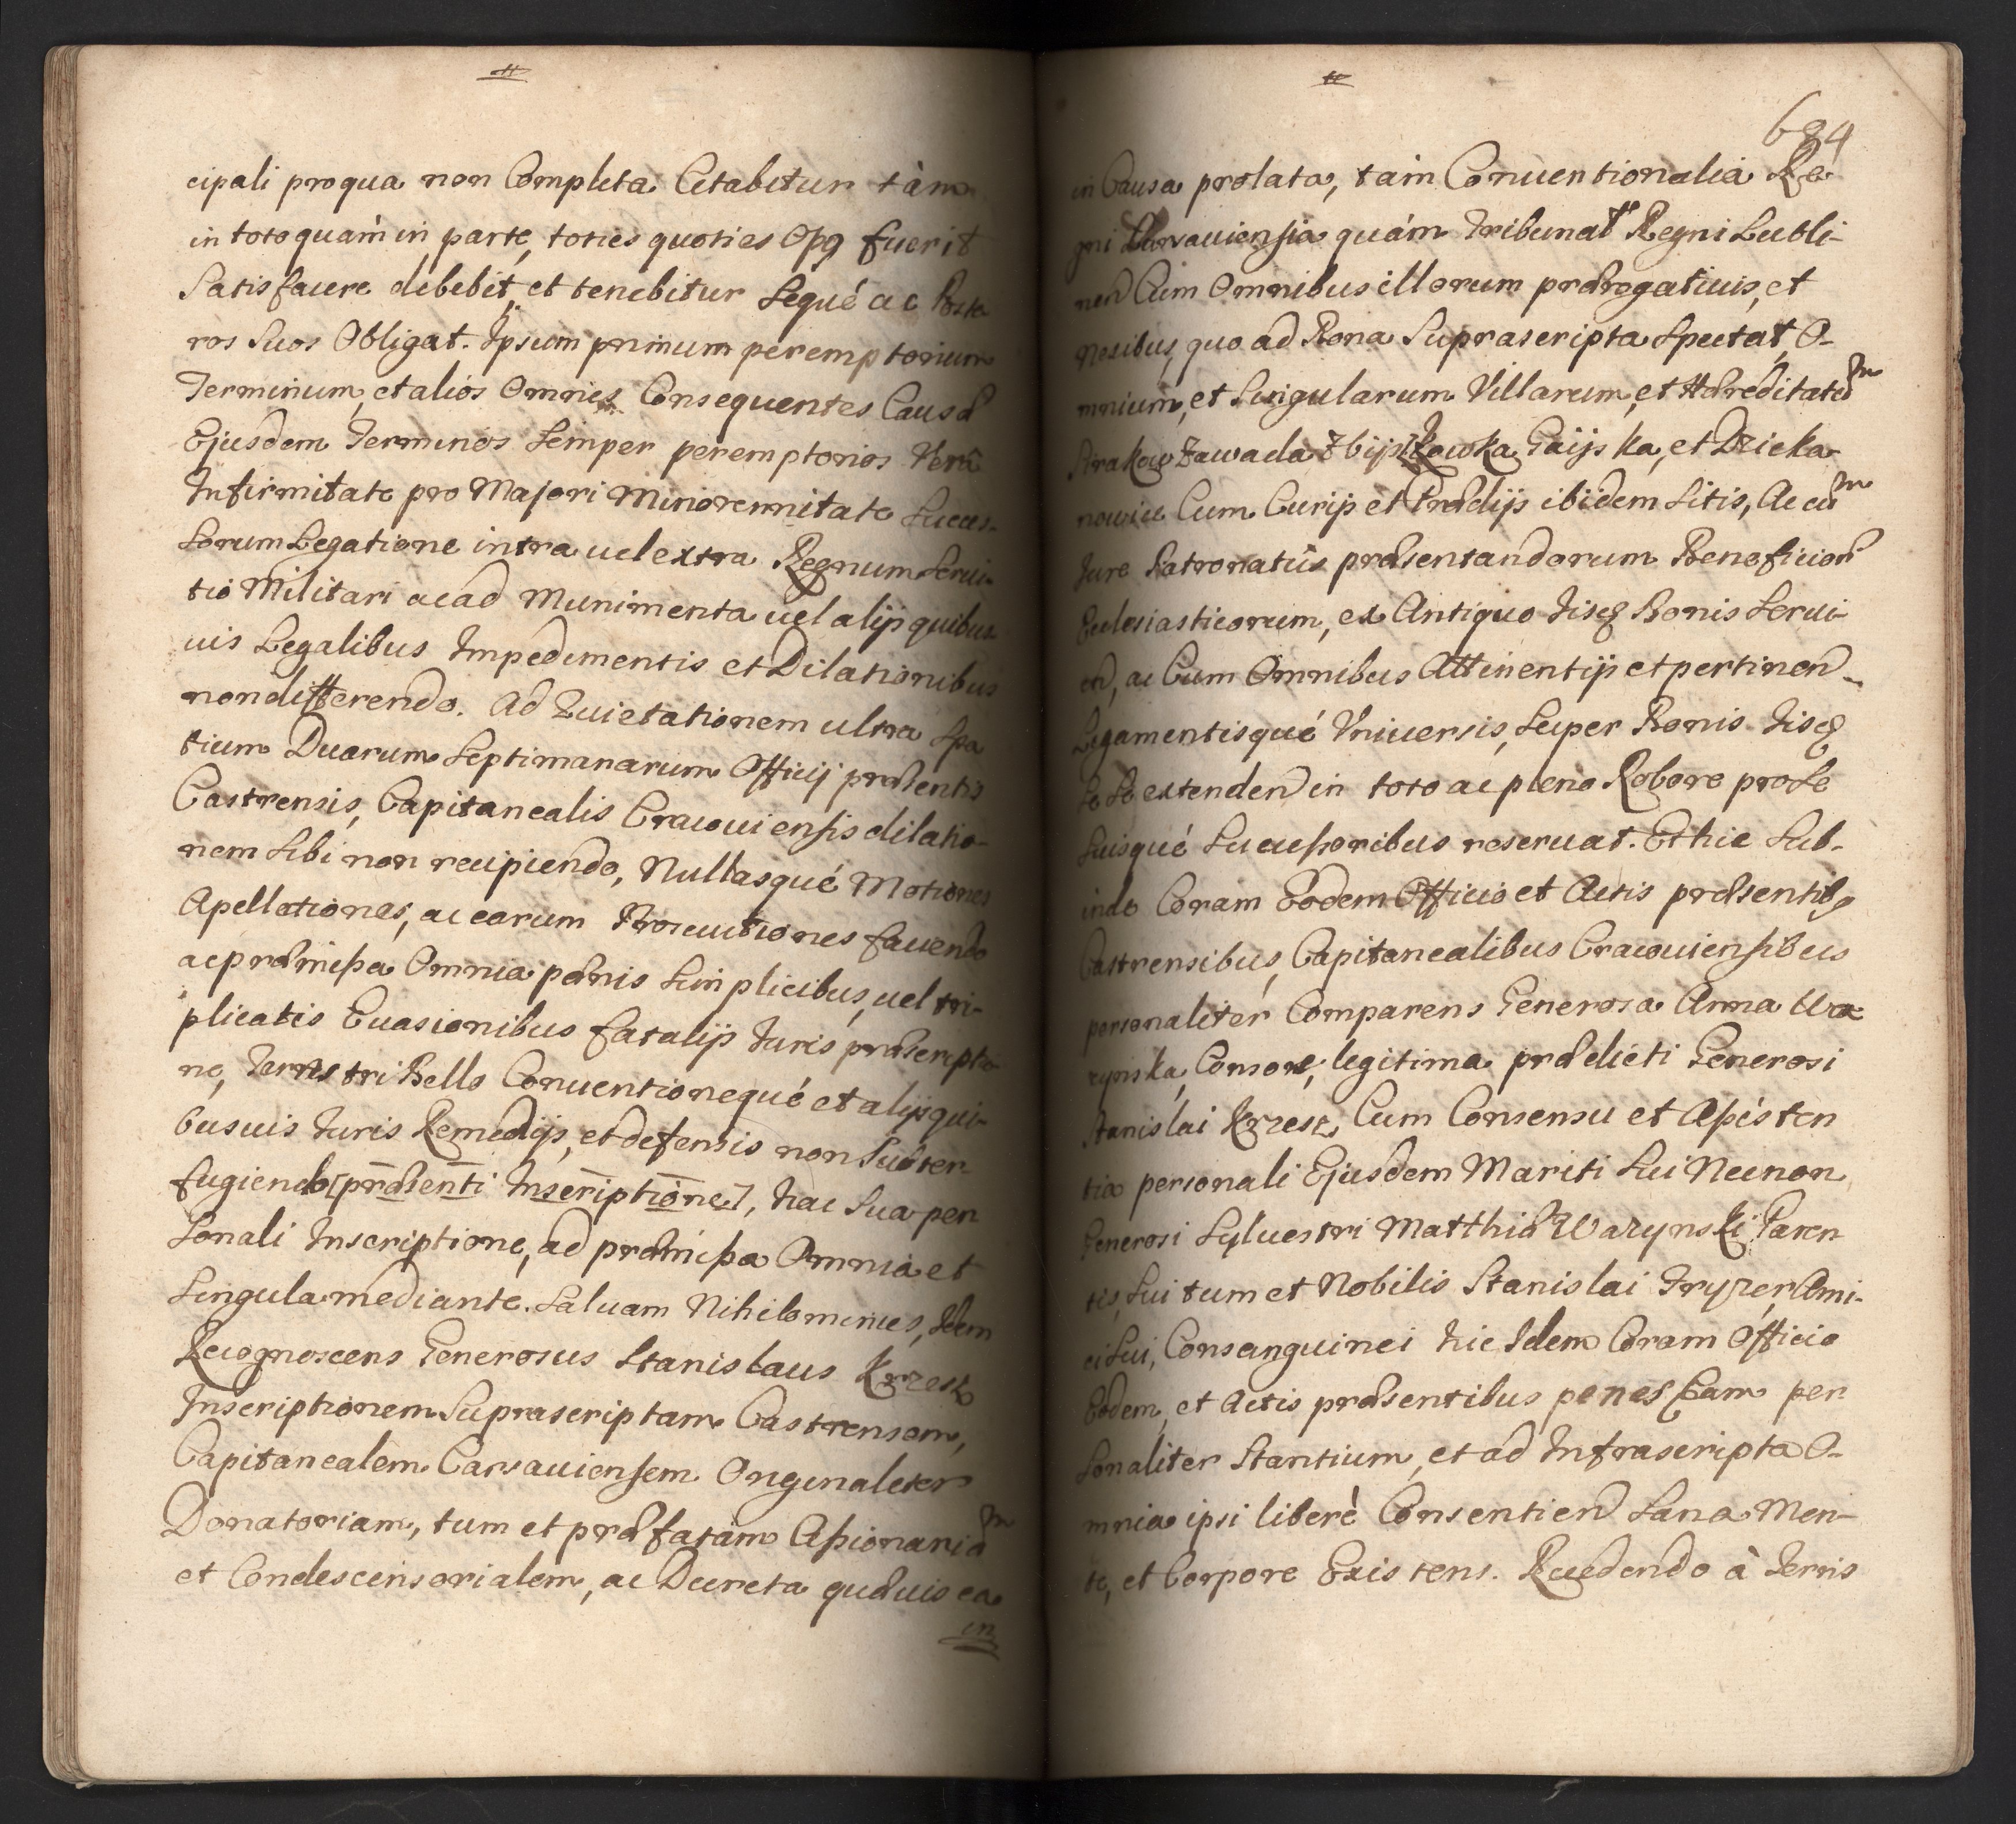 cipali pro qua non Completa Citabitur tàm
in toto quàm in parte, toties quoties Opq fuerit
Satisfacere debebit, et tenebitur Sequé ac Poste
ros Suos Obligat. Ipsum primum peremptorium
Terminum, et alios Omnes Consequentes Causæ
Ejusdem Terminos Semper peremptorios Verâ
Infirmitate pro Majori Minorennitate Succes-
sorum Legatione intra uel extra Regnum Serui-
tio Militari ac ad Munimenta uel alijs quibus-
uis Legalibus Impedimentis et Dilationibus
non differendo. Ad Quietationem ultra Spa
tium Duarum Septimanarum Officij præsentis
Castrensis, Capitanealis Cracouiensis dilatio-
nem Sibi non recipiendo, Nullasqué Motiones
Apellationes, ac earum Prosecutiones fauendo
ac præmissa Omnia pænis Simplicibus, uel tri-
plicatis Euasionibus fatalijs Juris præscriptio
ne, Terrestri Bello Conuentionequé et alijs qui-
busuis Juris Remedijs, et defensis non Subter
fugiendo [præsenti Inscriptione], hac Sua per
sonali Inscriptione, ad præmissa Omnia et
Singula mediante. Saluam Nihilominus, Idem
Recognoscens Generosus Stanislaus Krzesz
Inscriptionem Suprascriptam Castrensem,
Capitanealem Warsauiensem Originaliter
Donatoriam, tum et præfatam Assionariam
et Condescensorialem, ac Decreta quæuis ea
in
684
in Causa prolata, tàm Conuentionalia Re-
gni Warsauiensia quám Tribunalia Regni Lubli-
nen Cum Omnibus illorum prærogatiuis, et
Nexibus, quo ad Bona Suprascripta Spectat, O-
mnium, et Singularum Villarum, et Hæreditatum
Strakow Zawada Zbijs Kowka Gaijska, et Dzieka-
nowice Cum Curijs et Prædijs ibidem Sitis, Ac cum
Jure Patronatûs præsentandorum Beneficiorum
Ecclesiasticorum, ex Antiquo Iisq Bonis Serui-
en, ac Cum Omnibus Attinentijs et pertinen
Ligamentisqué Vniuersis, Super Bonis Iisq
Se Se extenden in toto ac pleno Robore pro Se
Suisqué Successoribus reseruat. Et hic Sub-
inde Coram Eodem Officio et Actis præsentibq
Castrensibus, Capitanealibus Cracouiensibus
personaliter Comparens Generosa Anna Wa
zynska, Consors, legitima prædicti Generosi
Stanislai Krzesz, Cum Consensu et Assisten
tia personali Ejusdem Mariti Sui Necnon
Generosi Syluestri Matthiæ Wazynski Paren
tis, Sui tum et Nobilis Stanislai Tryzer, Ami-
ci Sui, Consanguinei hic Idem Coram Officio
Eodem, et Actis præsentibus penes Eam per
sonaliter Stantium, et ad Infrascripta O-
mnia ipsi liberè Consentien Sana Men-
te, et Corpore Existens. Recedendo à Terris